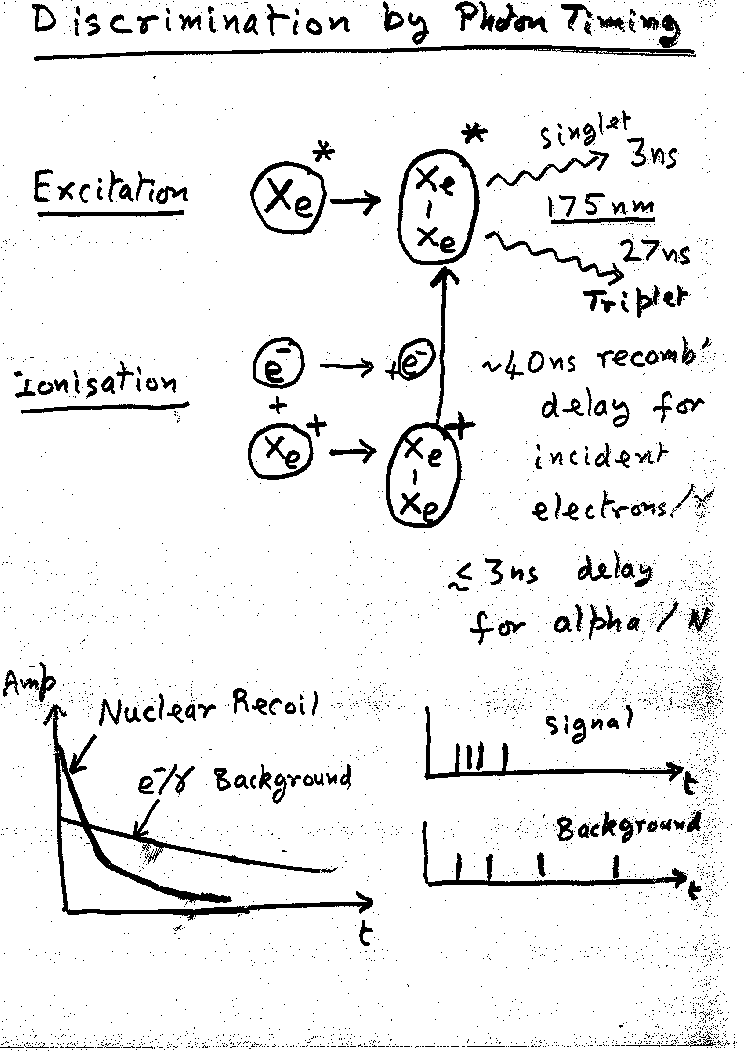 Discrimination by Photon Timing
*
*
singlet
3ns
Excitation
Xe
Xe
Xe
175nm
27ns
Triplet
Ionisation
e⁻
+e⁻
+
~40ns recomb'
delay for
incident
electrons/γ
Xe
+
Xe
Xe
+
≲ 3ns delay
for alpha / N
Amp
Nuclear Recoil
e⁻/γ Background
t
Signal
t
Background
t